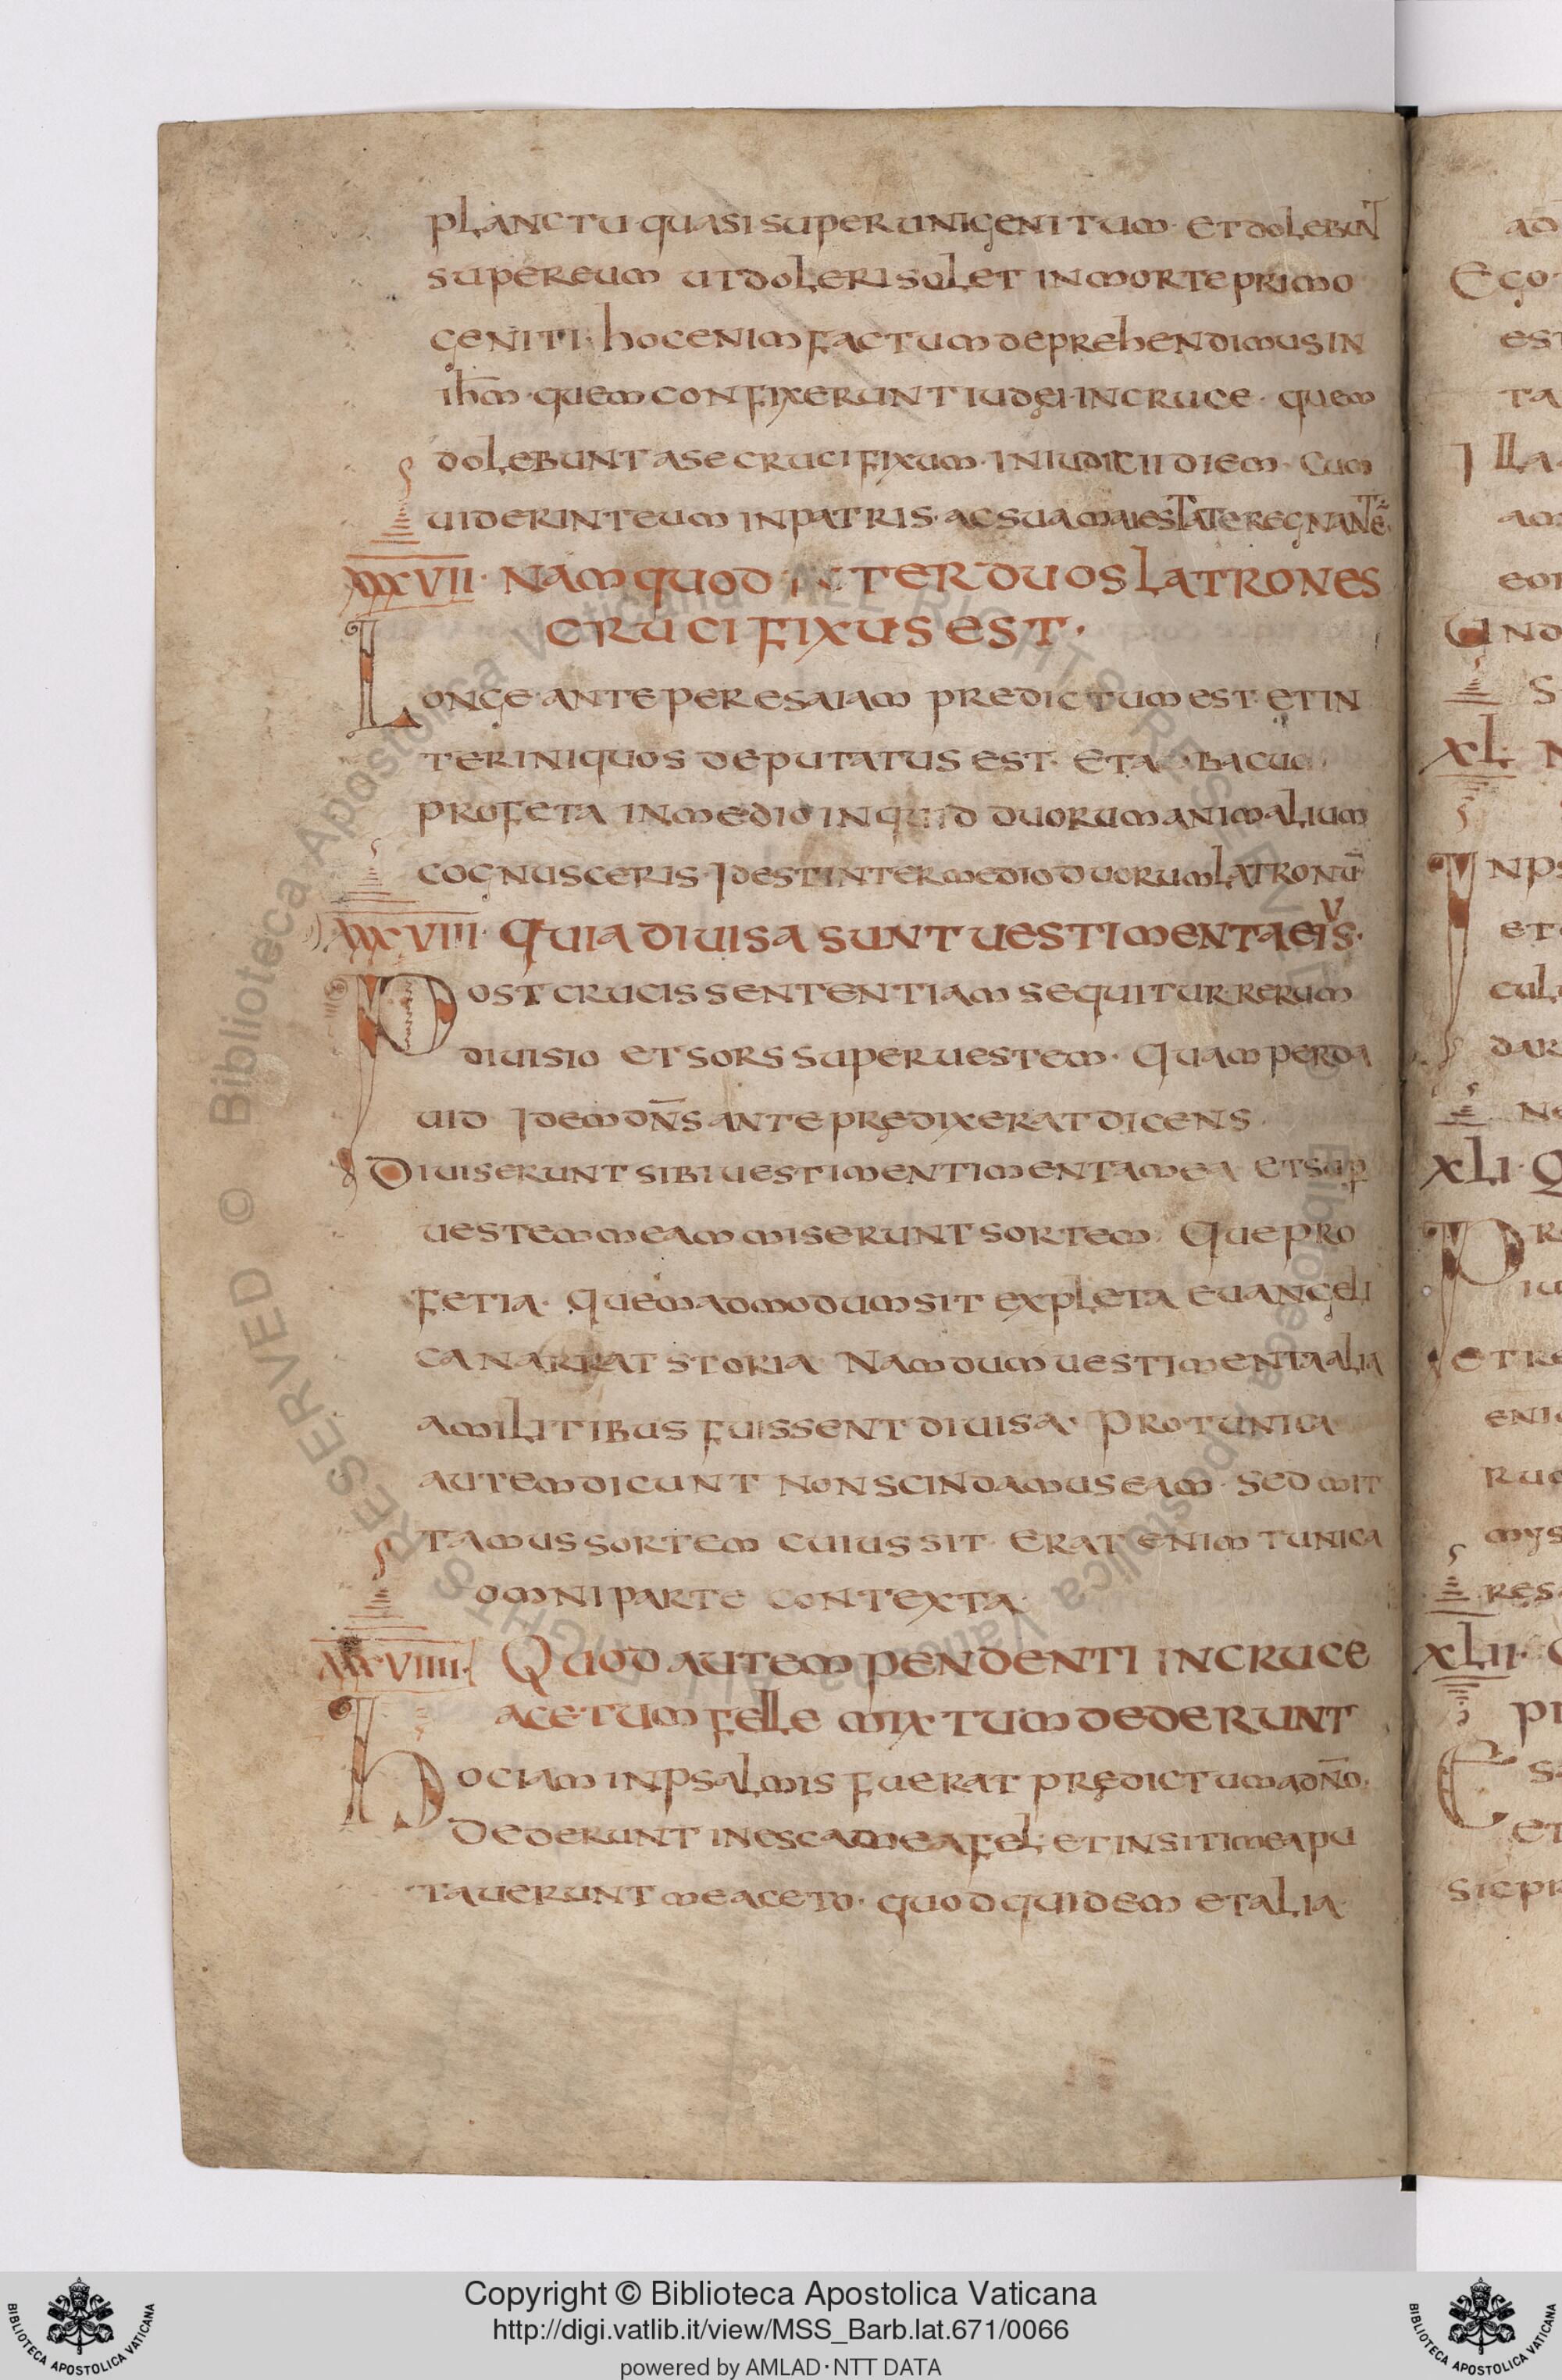 planctu quasi super unigenitum · et dolebunt
super eum ut doleri solet in morte primo
geniti · hoc enim factum deprehendimus in
ihm̄ · quem confixerunt iudęi · in cruce · quem
dolebunt a se crucifixum · in iudicii diem · Cum
uiderint eum in patris · ac sua maiestate regnantē ·
XXXVII · Nam quod inter duos latrones
crucifixus est ·
Longe · ante per esaiam predictum est · et in
ter iniquos deputatus est · Et abbacuc
profeta in medio inquid duorum animalium
cognusceris · Id est inter medio duorum latronū
XXXVIII · Quia diuisa sunt uestimenta eius ·
Post crucis sententiam sequitur · rerum
diuisio et sors super uestem · Quam per da
uid Idem dn̄s ante prędixerat dicens ·
Diuiserunt sibi uestimentimenta mea et sup
uestem meam miserunt sortem · Que pro
fetia · quemadmodum sit expleta euangeli
ca narrat storia Nam dum uestimenta alia
a militibus fuissent diuisa · Pro tunica
autem dicunt non scindamus eam · Sed mit
tamus sortem cuius sit · Erat enim tunica
omni parte contexta ·
XXXVIIII · Quod autem pendenti in cruce
acetum felle mixtum dederunt
Hoc iam in psalmis fuerat prędictum a dn̄o ·
Dederunt in esca mea fel · et in siti mea pu
tauerunt me aceto · quod quidem et alia ·
ad
Ego
est
ta
Illa
am
eor
Und
S
XL · N
In ps
et
cul
dar
ne
XLI · Q
Pr
iu
et re
eni
ruc
mys
res
XLII ·
pr
Es
et
sic pr
© Biblioteca Apostolica Vaticana ALL RIGHTS RESERVED © Biblioteca Apostolica Vaticana ALL RIGHTS RESERVED
Copyright © Biblioteca Apostolica Vaticana
http://digi.vatlib.it/view/MSS_Barb.lat.671/0066
powered by AMLAD·NTT DATA
BIBLIOTECA APOSTOLICA VATICANA
BIBLIOTECA APOSTOLICA VATICANA